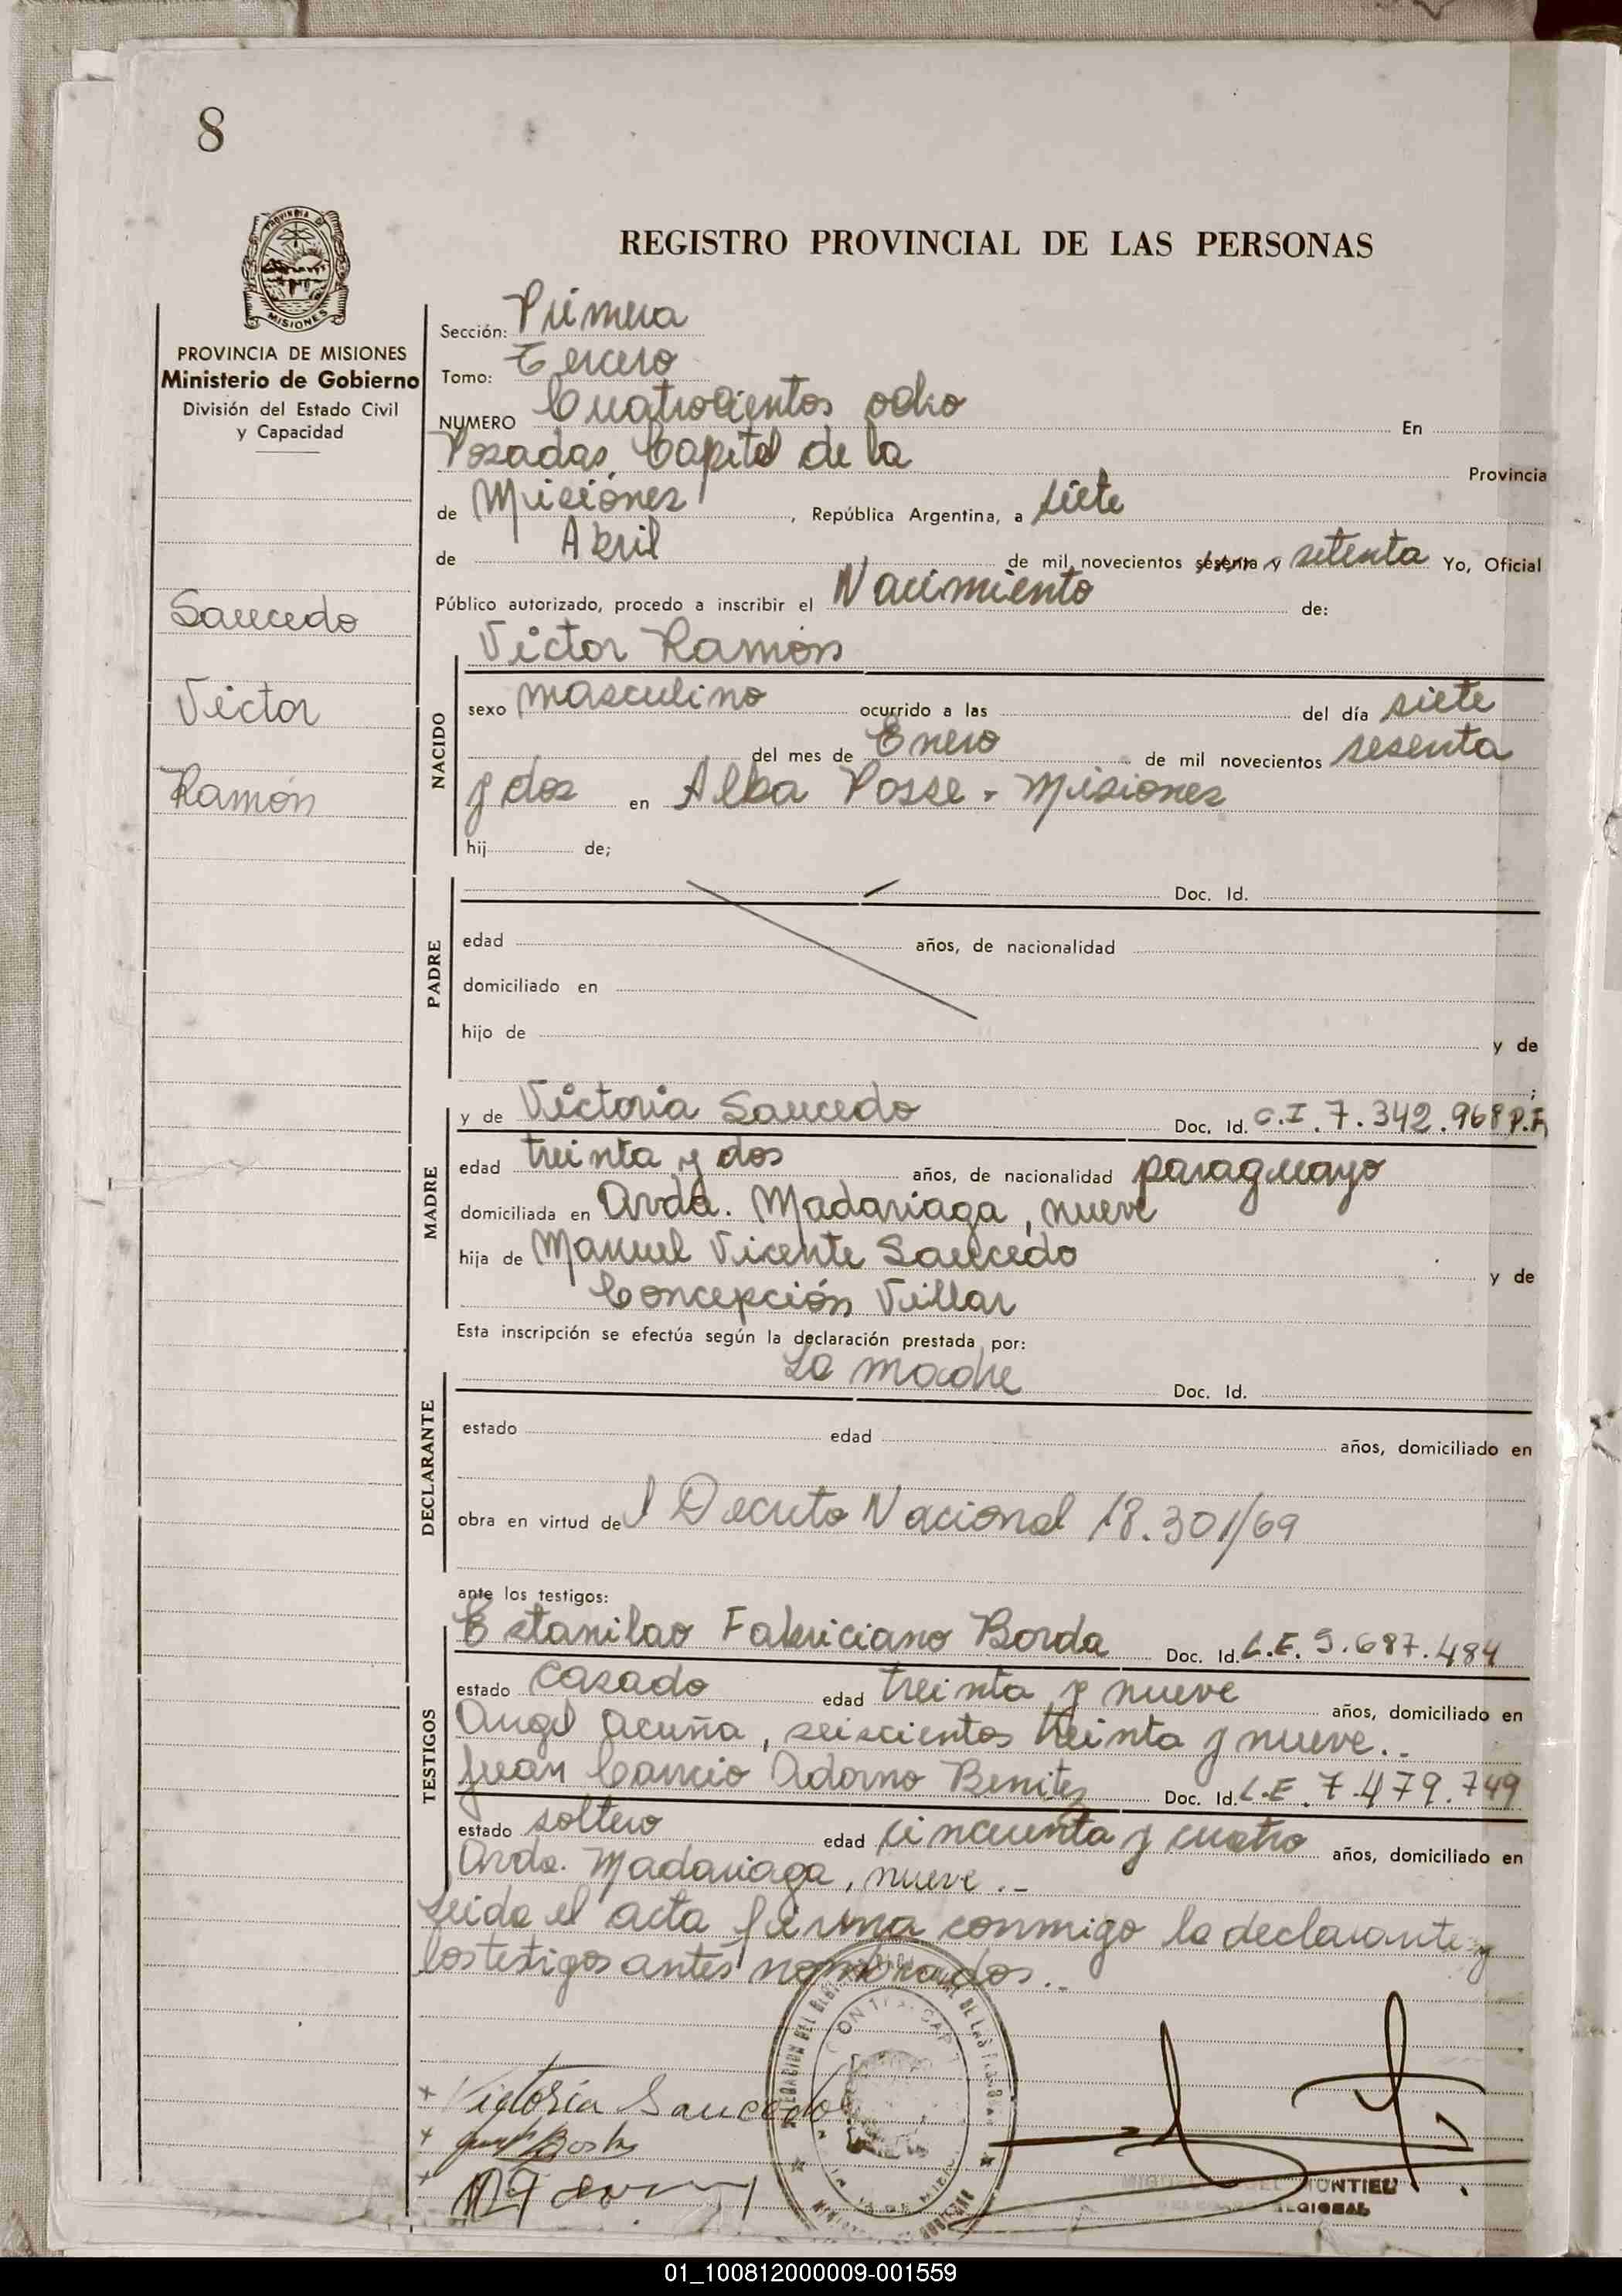 8
PROVINCIA DE MISIONES
Ministerio de Gobierno
División del Estado Civil
y Capacidad
Saucedo
Victor
Ramón
REGISTRO PROVINCIAL DE LAS PERSONAS
Sección: Primera
Tomo: Tercero
NUMERO Cuatrocientos ocho En
Posadas, Capital de la Provincia
de Misiones, República Argentina, a siete
de Abril de mil novecientos sesenta y setenta Yo, Oficial
Público autorizado, procedo a inscribir el Nacimiento de:
Victor Ramón
NACIDO
sexo masculino ocurrido a las del día siete
del mes de Enero de mil novecientos sesenta
y dos en Alba Posse - Misiones
hij de;
PADRE
Doc. Id.
edad años, de nacionalidad
domiciliado en
hijo de y de
;
MADRE
y de Victoria Saucedo Doc. Id. C.I. 7.342.968 P.F.
edad treinta y dos años, de nacionalidad paraguayo
domiciliada en Avda. Madariaga, nueve
hija de Manuel Vicente Saucedo y de
Concepción Villar
Esta inscripción se efectúa según la declaración prestada por:
DECLARANTE
La madre Doc. Id.
estado edad años, domiciliado en
obra en virtud del Decreto Nacional 18.301/69
ante los testigos:
TESTIGOS
Estanilao Fabriciano Borda Doc. Id. L.E. 5.687.484
estado casado edad treinta y nueve años, domiciliado en
Angel Acuña, seiscientos treinta y nueve..
Juan Cancio Adorno Benitez Doc. Id. L.E. 7.479.749
estado soltero edad cincuenta y cuatro años, domiciliado en
Avda. Madariaga, nueve.-
Leida el acta firma conmigo la declarante y
los testigos antes nombrados..
Victoria Saucedo
MONTIEL
REGIONAL
01_100812000009-001559